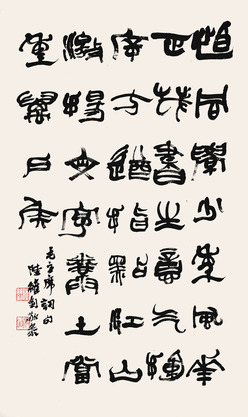 恰同學少年風華
正茂書生意气揮
斥方遒指點江山
激揚文字糞土當
年萬戶侯
毛主席詞句
陸維釗